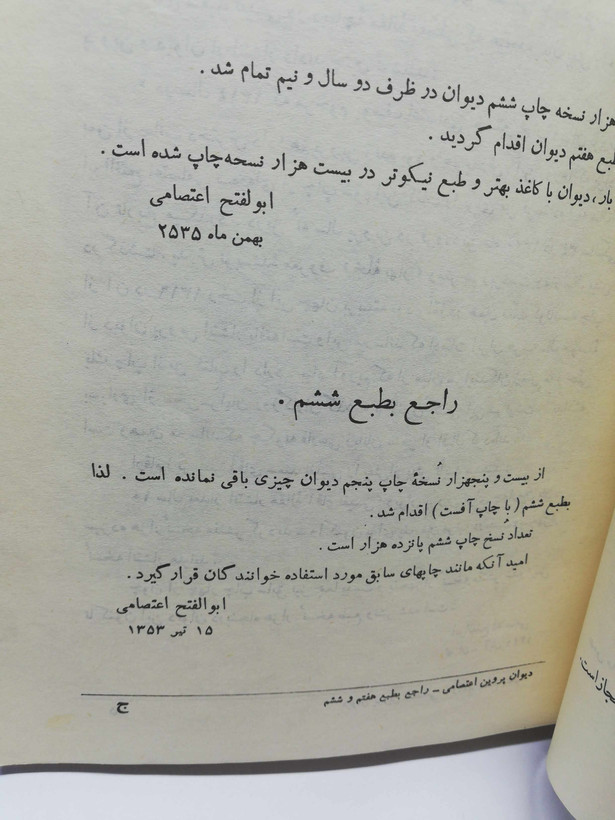 هزار نسخه چاپ ششم دیوان در ظرف دو سال و نیم تمام شد .
طبع هفتم دیوان اقدام گردید .
بار، دیوان با کاغذ بهتر و طبع نیکوتر در بیست هزار نسحه چاپ شده است .
ابولفتح اعتصامی
بهمن ماه ۲۵۳۵
راجع بطبع ششم .
از بیست و پنجهزار نُسخهٔ چاپ پنجم دیوان چیزی باقی نمانده است . لذا
بطبع ششم (با چاپ آفست) اقدام شد .
تعداد نُسخ چاپ ششم پانزده هزار است .
امید آنکه مانند چاپهای سابق مورد استفاده خوانندگان قرار گیرد .
ابوالفتح اعتصامی
۱۵ تیر ۱۳۵۳
دیوان پروین اعتصامی – راجع بطبع هفتم و ششم
ج
مجاز است.